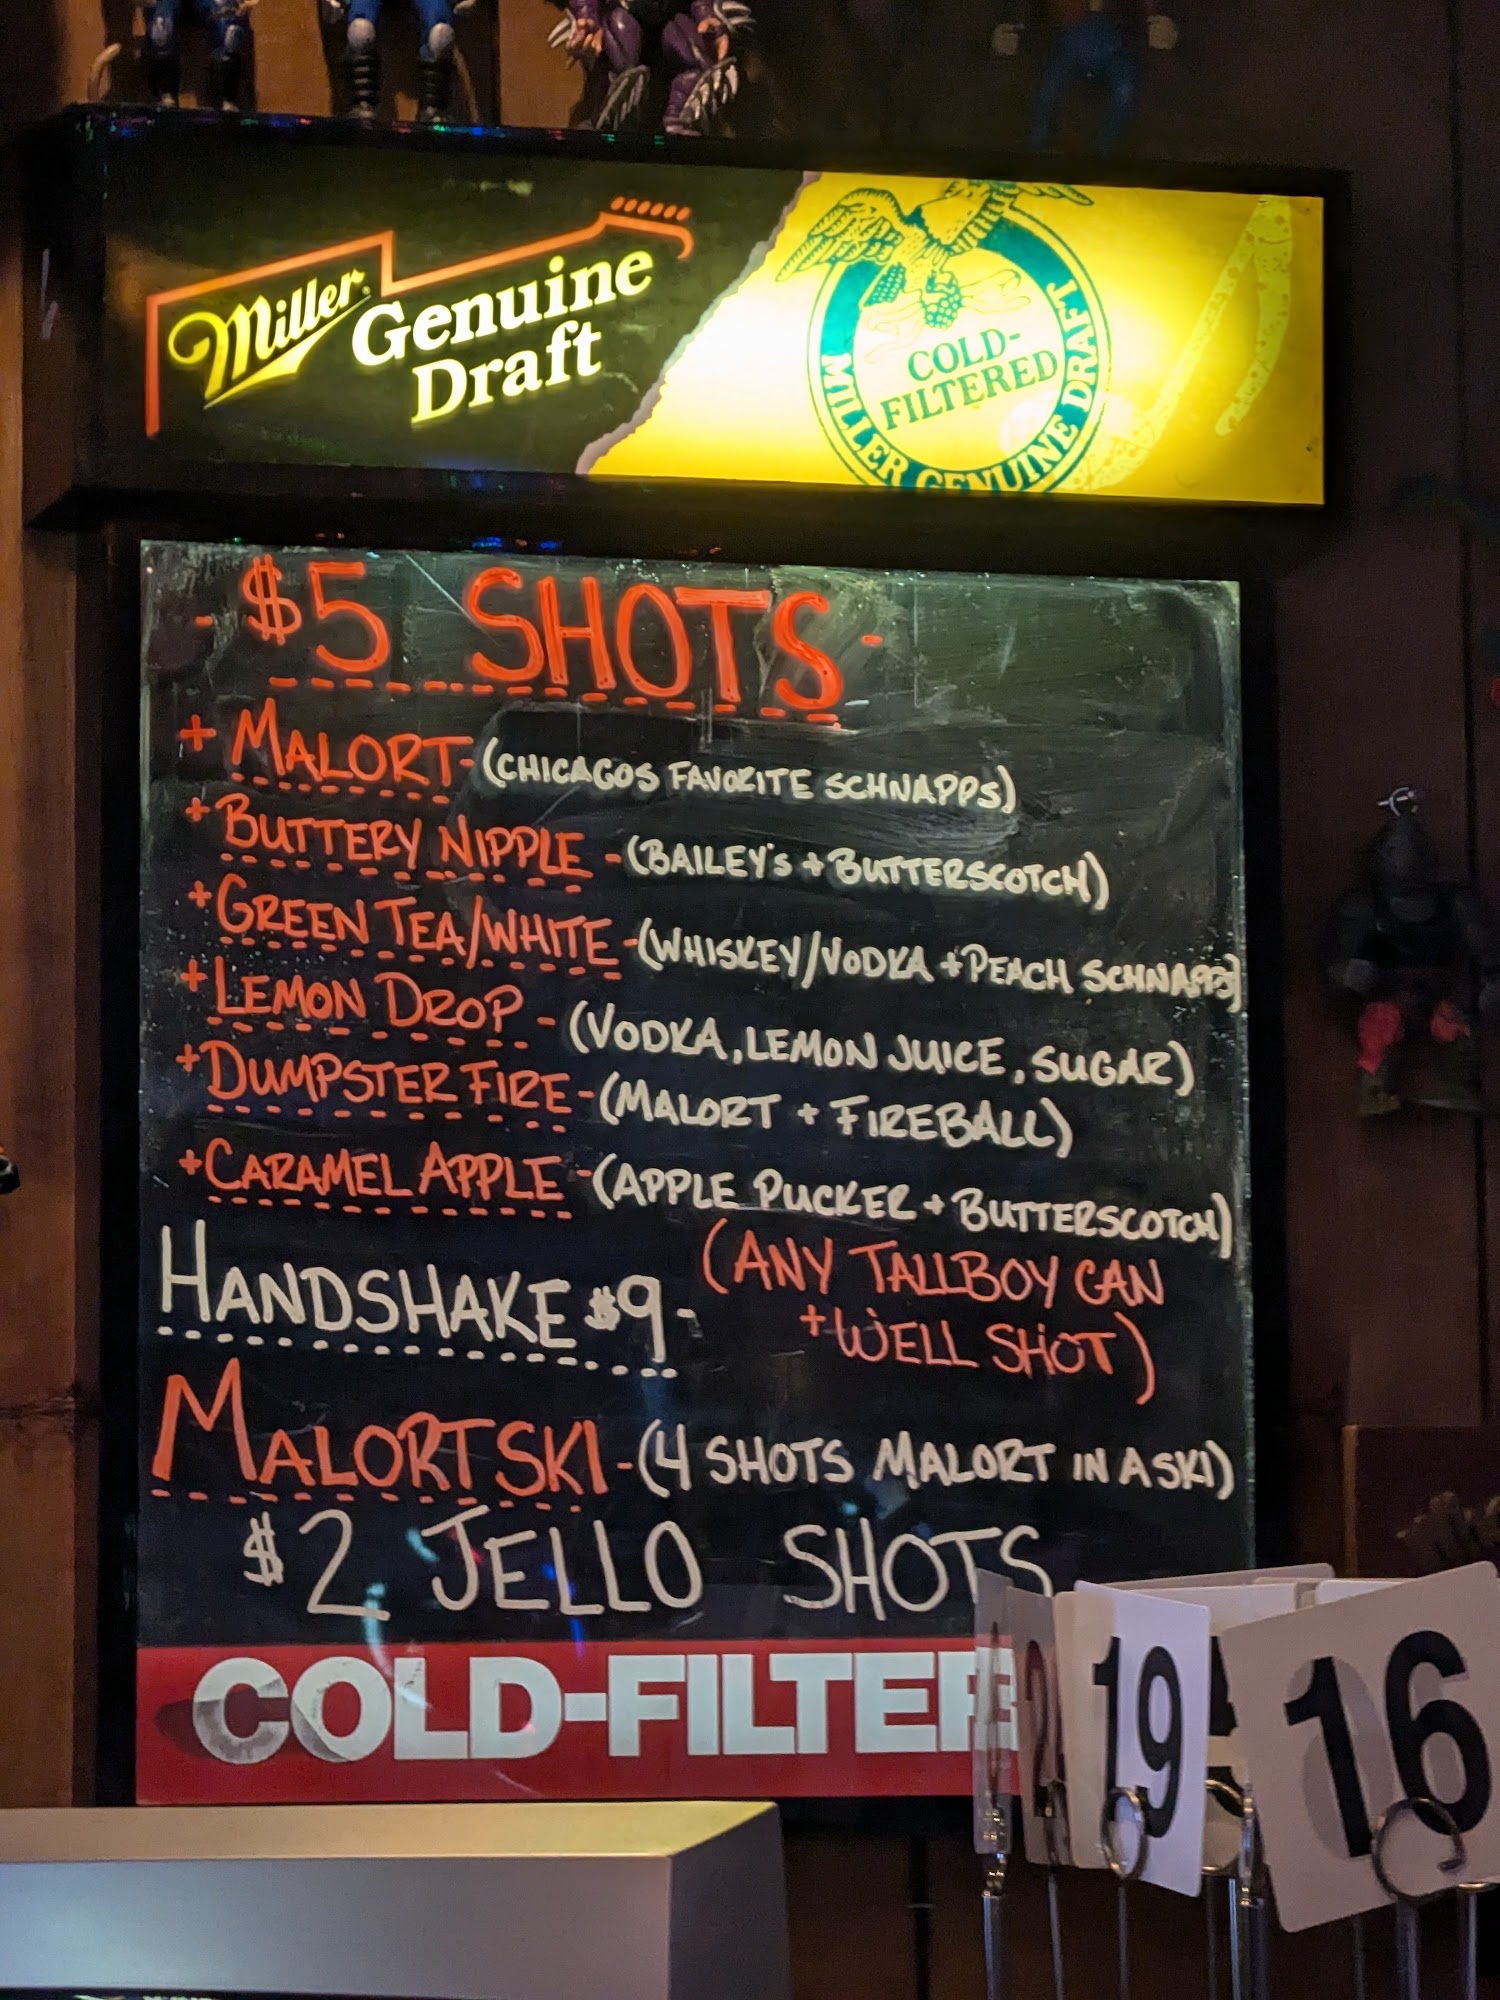 Miller
Genuine
Draft
COLD-
FILTERED
MILLER GENUINE DRAFT
- $5 SHOTS -
+ MALORT - (CHICAGOS FAVORITE SCHNAPPS)
+ BUTTERY NIPPLE - (BAILEY'S + BUTTERSCOTCH)
+ GREEN TEA/WHITE - (WHISKEY/VODKA + PEACH SCHNAPPS)
+ LEMON DROP - (VODKA, LEMON JUICE, SUGAR)
+ DUMPSTER FIRE - (MALORT + FIREBALL)
+ CARAMEL APPLE - (APPLE PUCKER + BUTTERSCOTCH)
HANDSHAKE $9 - (ANY TALLBOY CAN
+ WELL SHOT)
MALORTSKI - (4 SHOTS MALORT IN A SKI)
$2 JELLO SHOTS
COLD-FILTER
19
16